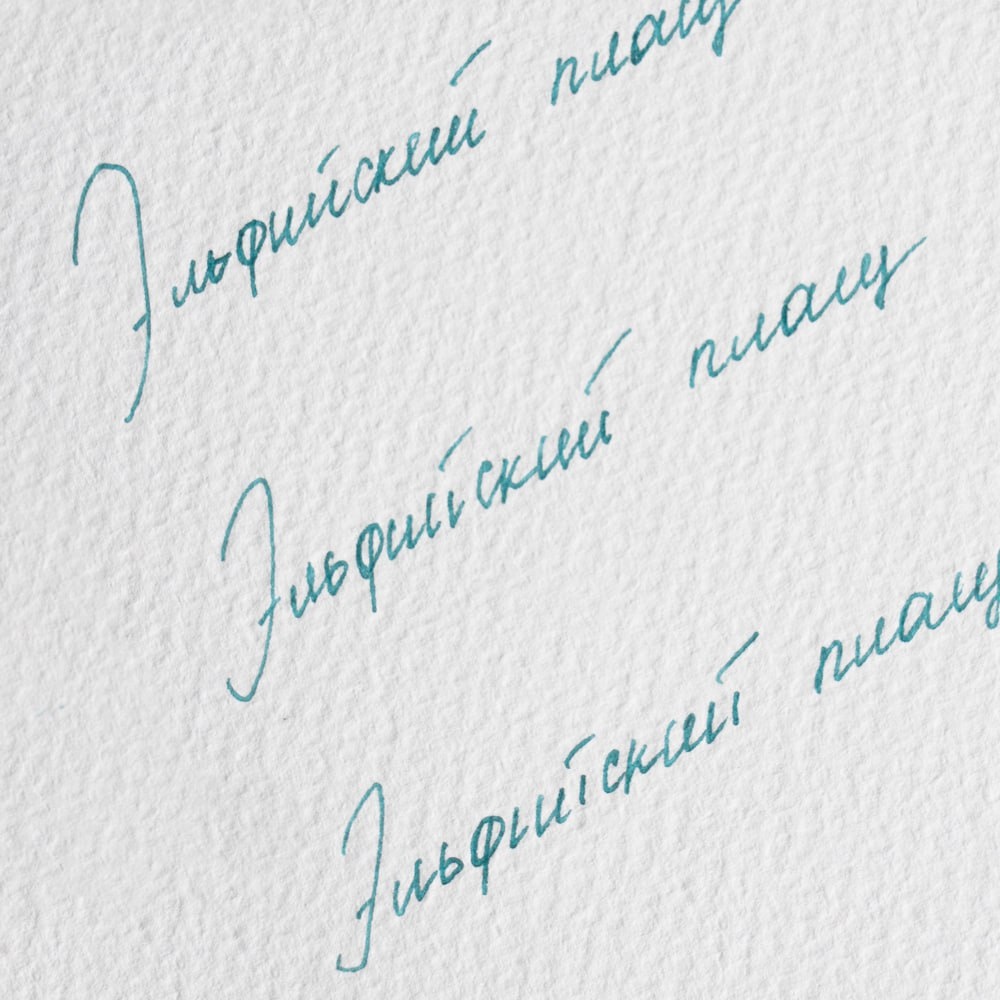 Эльфийский плащ
Эльфийский плащ
Эльфийский плащ